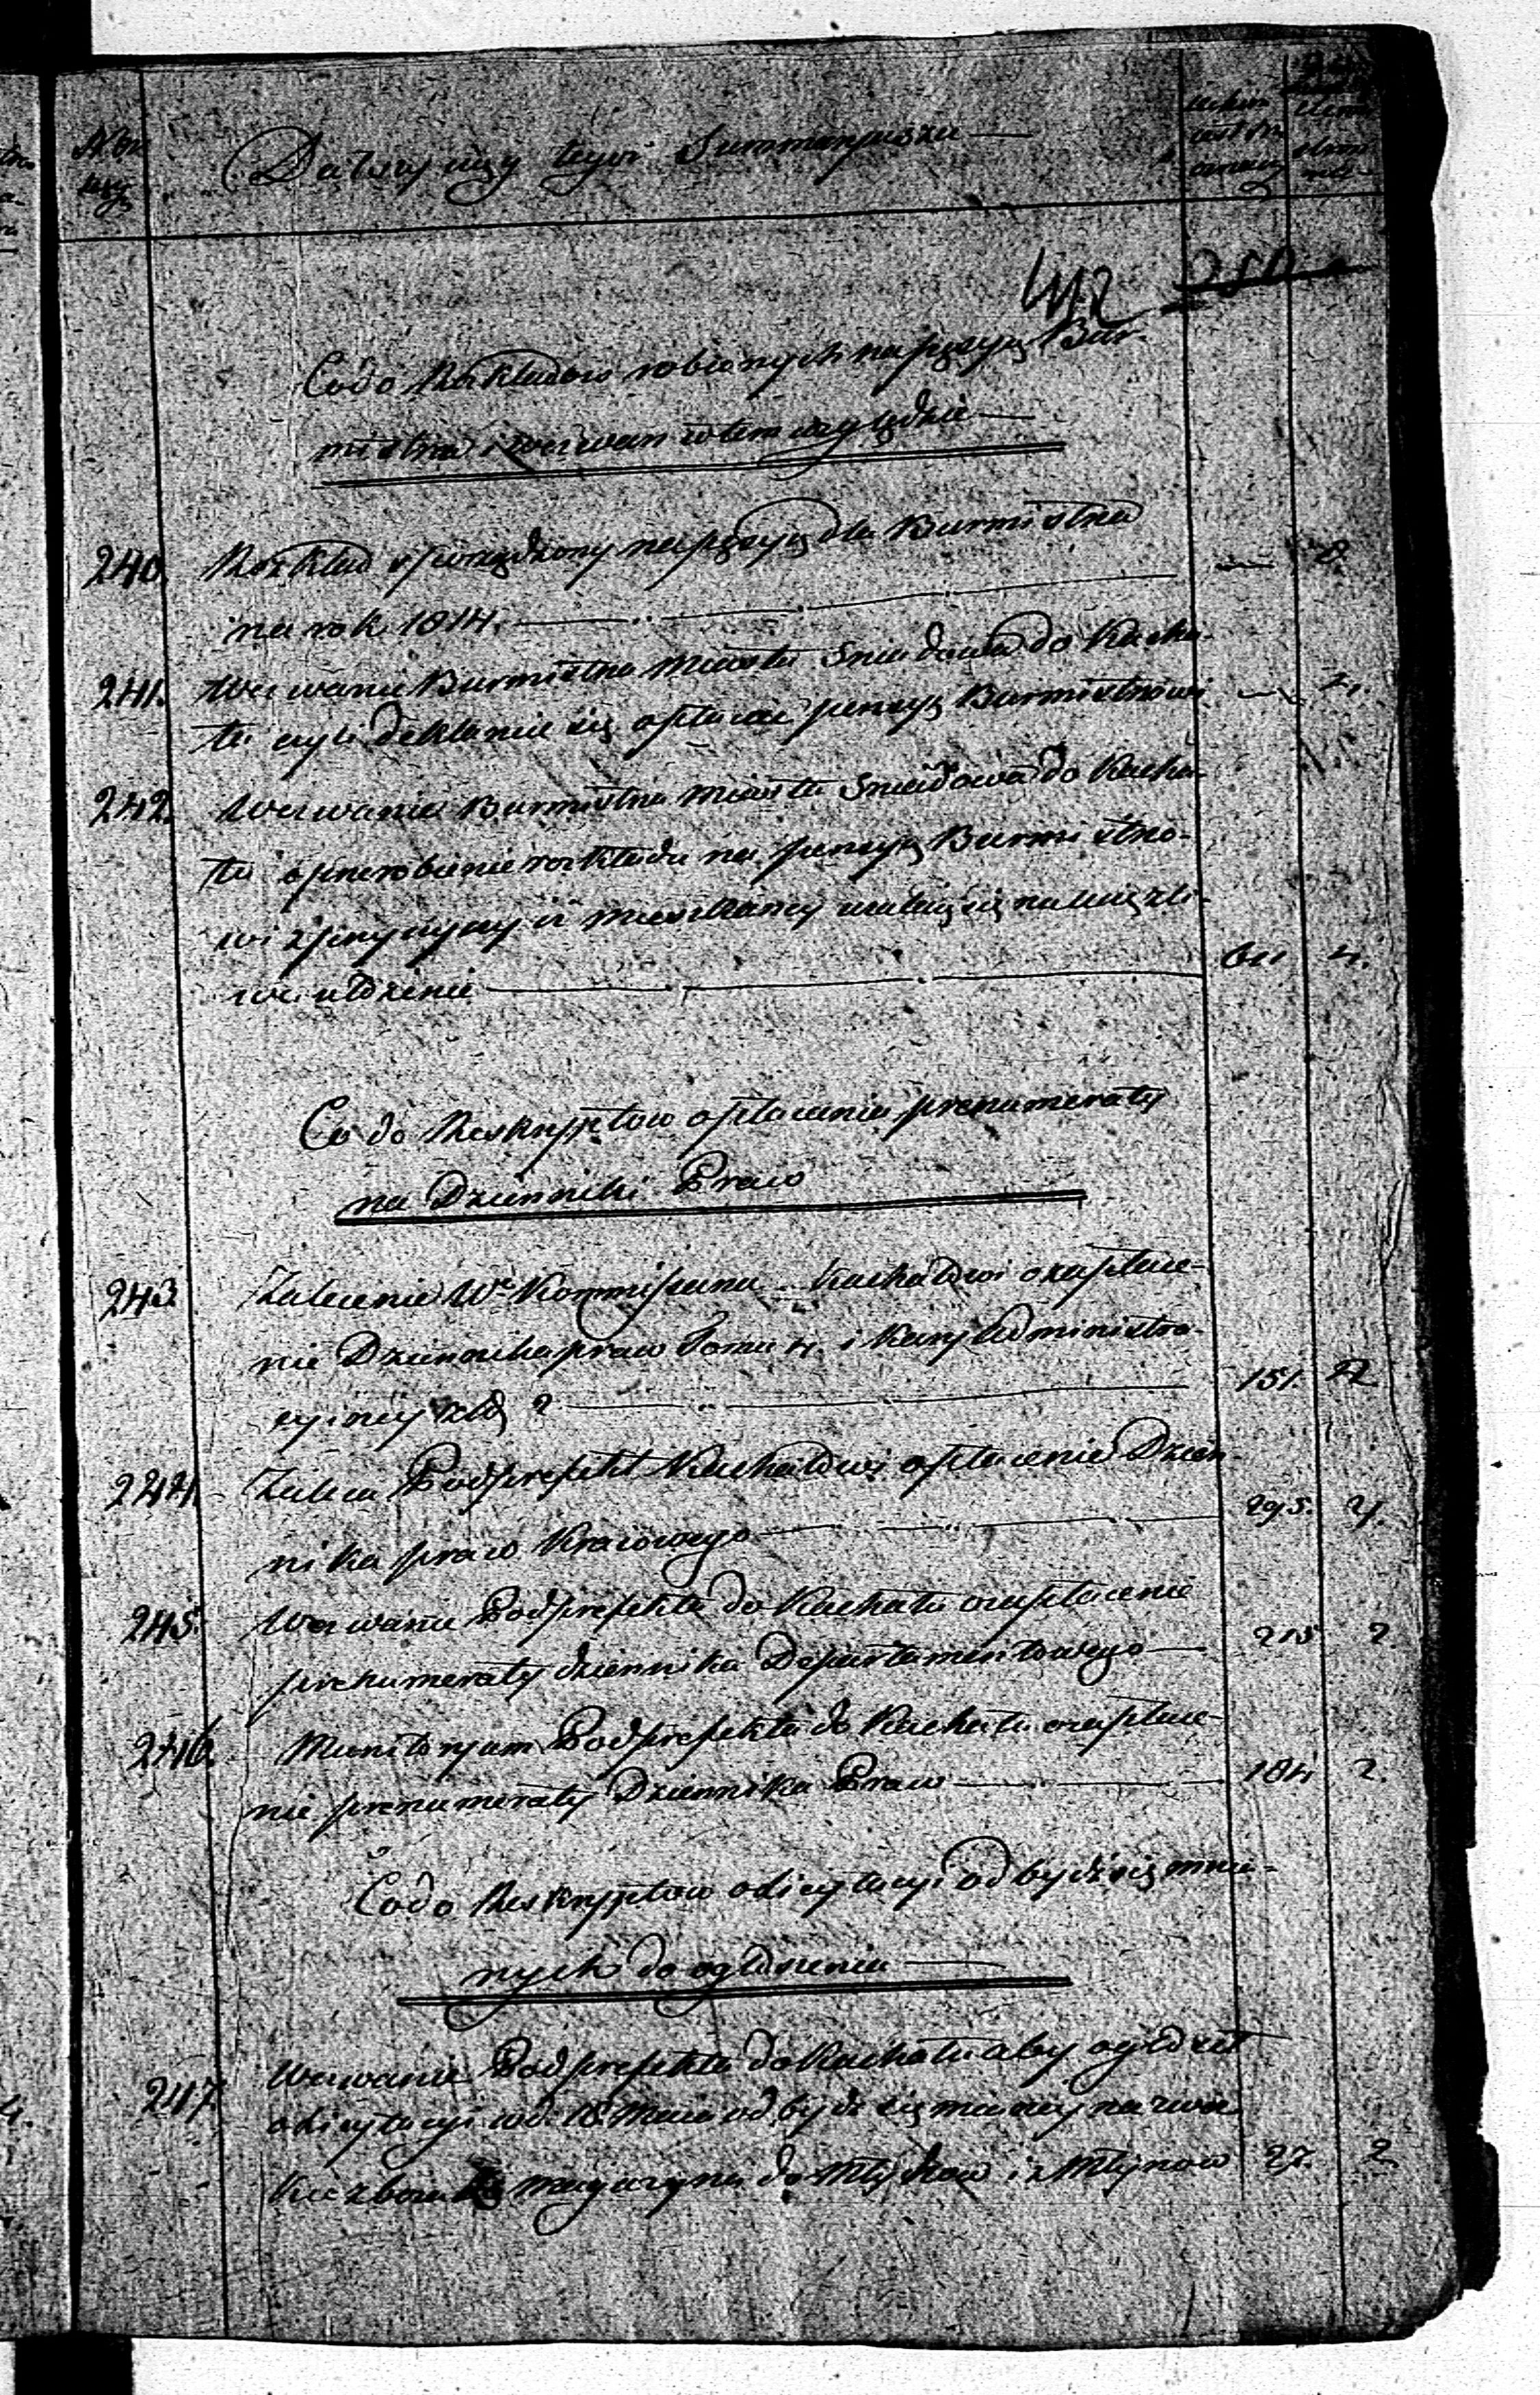 Dalszy ciąg tegoż Summaryusza
442
Co do Rozkładow robionych na pęsyą Bur-
mistrza i wezwan w tem względzie
240. Rozkład sporządzony na pęsyą dla Burmistrza 8.
na rok 1814.
241. Wezwanie Burmistrza Miasta Sniadowa do Kacha- 4.
łu czyli deklaruie się opłacac pensyą Burmistrzowi
242. Wezwanie Burmistrza Miasta Sniadowa do Kacha-
łu o przerobienie rozkładu na pensyą Burmistrzo-
wi z przyczyny iż mieszkancy użalaią się na
4.
Co do Reskryptow opłacenia prenumeraty
na Dzienniki Praw
243. Zalecenie Wo Kommissarza Kachałowi o zapłace-
nie Dziennika praw Tomu 4. i kary Administra-
cyiney złt 2 151. 2
244. Zaleca Podprefekt Kachałowi opłacenie Dzien-
nika praw Kraiowego 295. 2.
245. Wezwanie Podprefekta do Kachału o zapłacenie
prenumeraty dziennika Departamentowego 215 2.
246. Monitoryum Podprefekta do Kachału o zapłace-
nie prenumeraty Dziennika Praw 184 2.
Co do Reskryptow o licytacyi odbydź się maią-
cych do ogłoszenia
247. Wezwanie Podprefekta do Kachału aby ogłosił
o licytacyi w d. 18 Maia odbydź się maiącey na
zboża z magazynu do Młynow i z Młynow 27. 2.